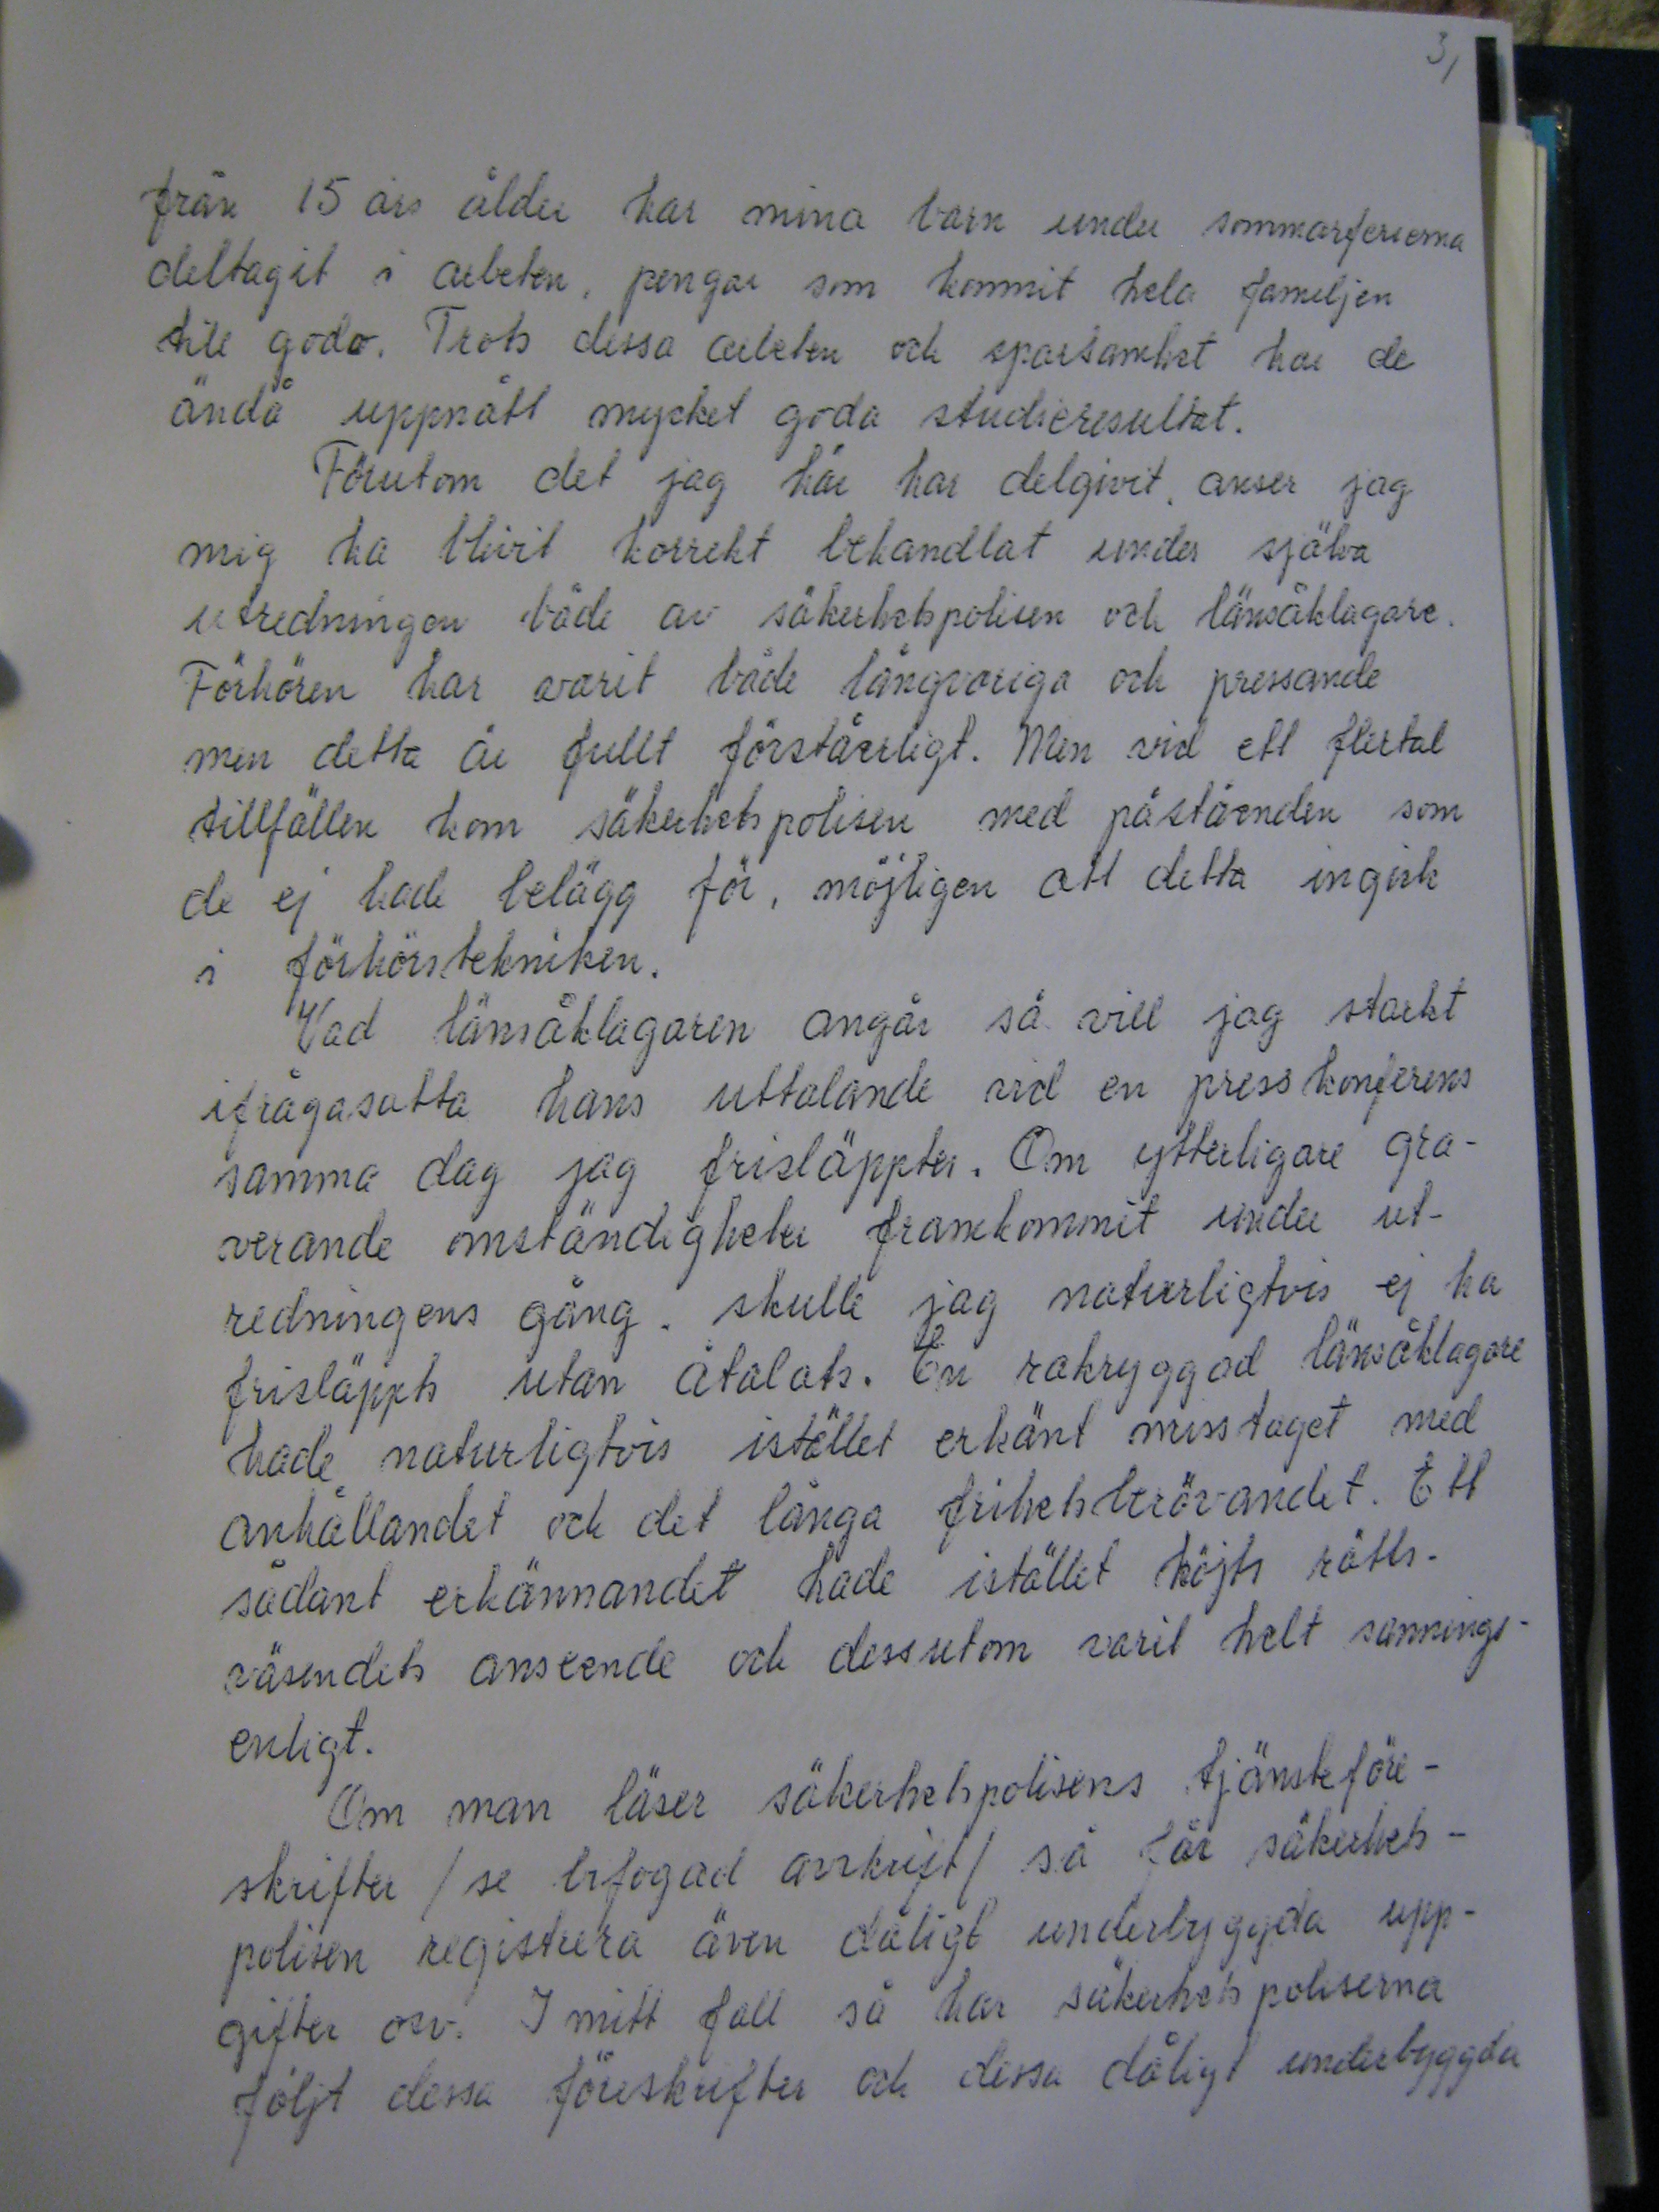 3,
från 15 års ålder har mina barn under sommarferierna
deltagit i arbeten, pengar som kommit hela familjen
till godo. Trots dessa arbeten och sparsamhet har de
ändå uppnått mycket goda studieresultat.
Förutom det jag här har delgivit, anser jag
mig ha blivit korrekt behandlat under själva
utredningen både av säkerhetspolisen och länsåklagare.
Förhören har varit både långvariga och pressande
men detta är fullt förståerligt. Men vid ett flertal
tillfällen kom säkerhetspolisen med påståenden som
de ej hade belägg för, möjligen att detta ingick
i förhörstekniken.
Vad länsåklagaren angår så vill jag starkt
ifrågasatta hans uttalande vid en presskonferens
samma dag jag frisläpptes. Om ytterligare gra-
verande omständigheter framkommit under ut-
redningens gång, skulle jag naturligtvis ej ha
frisläppts utan åtalats. En rakryggad länsåklagare
hade naturligtvis istället erkänt misstaget med
anhållandet och det långa frihetsberövandet. Ett
sådant erkännandet hade istället höjts rätts-
väsendets anseende och dessutom varit helt sannings-
enligt.
Om man läser säkerhetspolisens tjänsteföre-
skrifter / se bifogad avskrift / så får säkerhets-
polisen registrera även dåligt underbyggda upp-
gifter osv. I mitt fall så har säkerhetspoliserna
följt dessa föreskrifter och dessa dåligt underbyggda